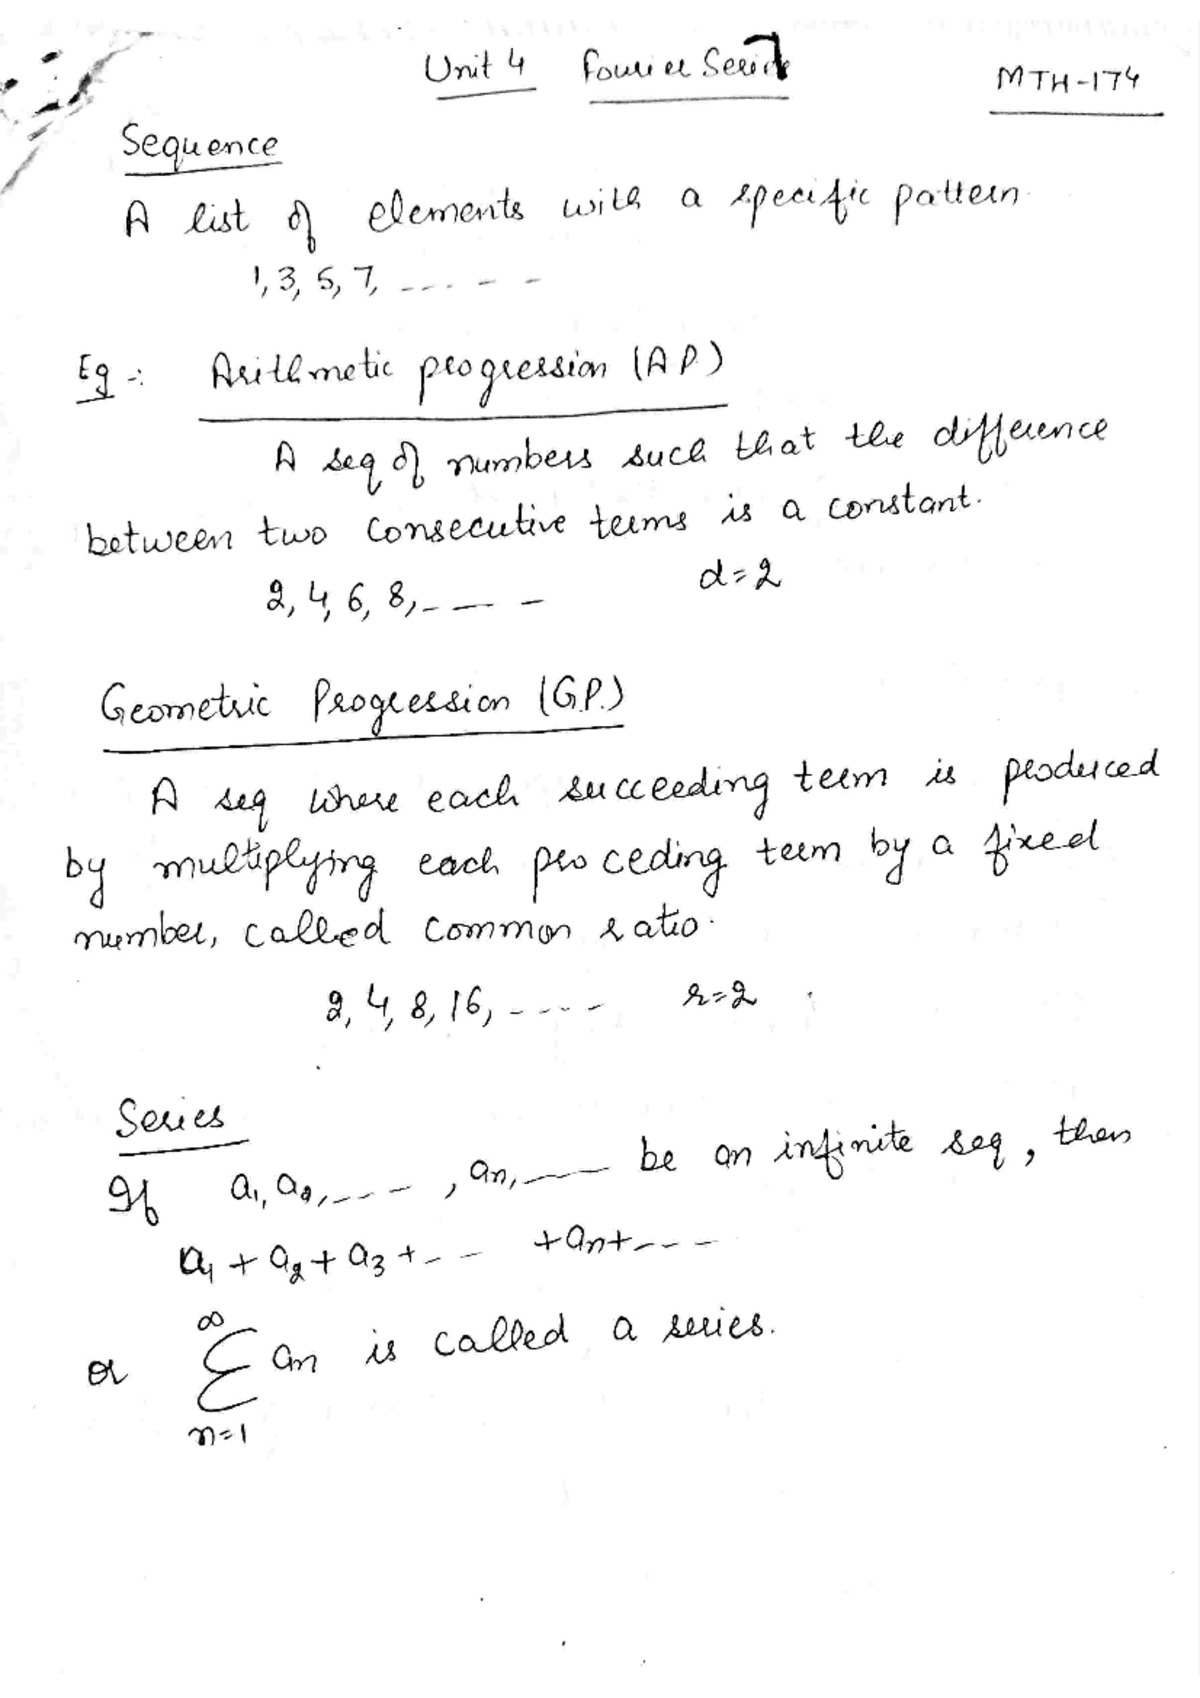 Unit 4 Fourier Series
MTH-174
Sequence
A list of elements with a specific pattern.
1, 3, 5, 7, ------
Eg -: Arithmetic progression (A.P.)
A seq of numbers such that the difference
between two consecutive terms is a constant.
2, 4, 6, 8, ---- d=2
Geometric Progression (G.P.)
A seq where each succeeding term is produced
by multiplying each proceding term by a fixed
number, called common ratio.
2, 4, 8, 16, ---- r=2
Series
If a₁, a₂, ----, aₙ, --- be an infinite seq, then
a₁ + a₂ + a₃ + --- + aₙ + ----
∞
or Σ aₙ is called a series.
n=1